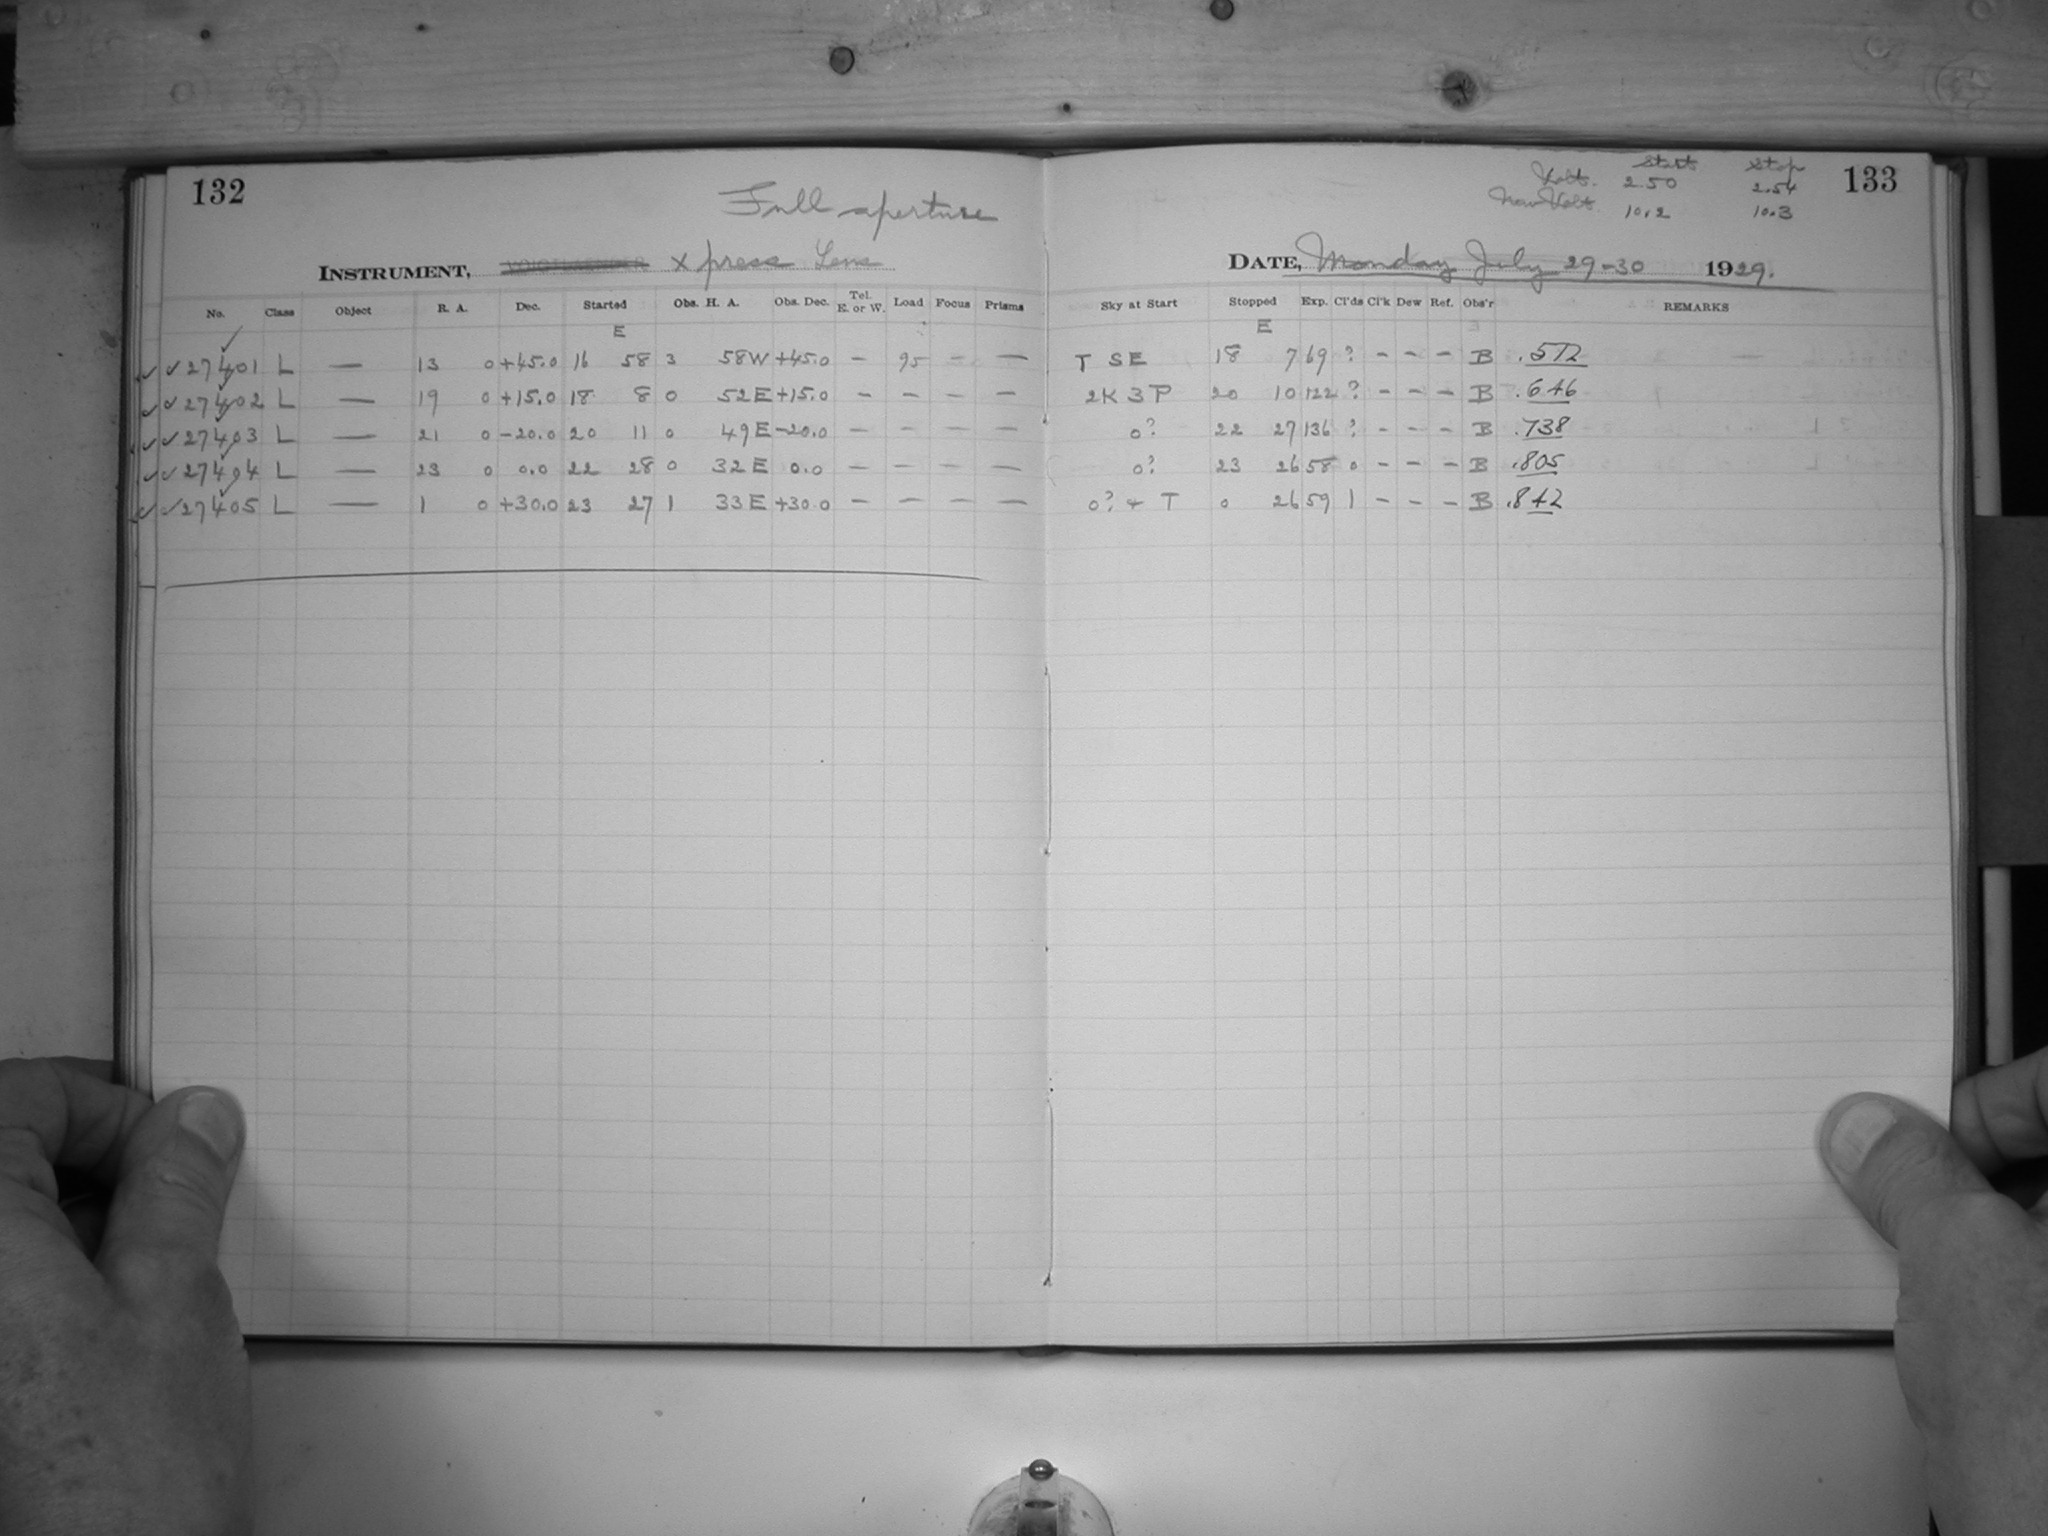 132
Full aperture
INSTRUMENT, Xpress Lens
No. Class Object R. A. Dec. Started Obs. H. A. Obs. Dec. Tel. E. or W. Load Focus Prisms
E
✓ ✓ 27401 L — 13 0 +45.0 16 58 3 58W +45.0 — 95 — —
✓ ✓ 27402 L — 19 0 +15.0 18 8 0 52E +15.0 — — — —
✓ ✓ 27403 L — 21 0 -20.0 20 11 0 49E -20.0 — — — —
✓ ✓ 27404 L — 23 0 0.0 22 28 0 32E 0.0 — — — —
✓ ✓ 27405 L — 1 0 +30.0 23 27 1 33E +30.0 — — — —
Start Stop 133
Volts. 2.50 2.54
10.2 10.3
DATE, Monday July 29-30 1929.
Sky at Start Stopped Exp. Cl'ds Cl'k Dew Ref. Obs'r REMARKS
E
T SE 18 7 69 ? - - - B .572
2K 3P 20 10 122 ? - - - B .646
0? 22 27 136 ? - - - B .738
0? 23 26 58 0 - - - B .805
0? + T 0 26 59 1 - - - B .842